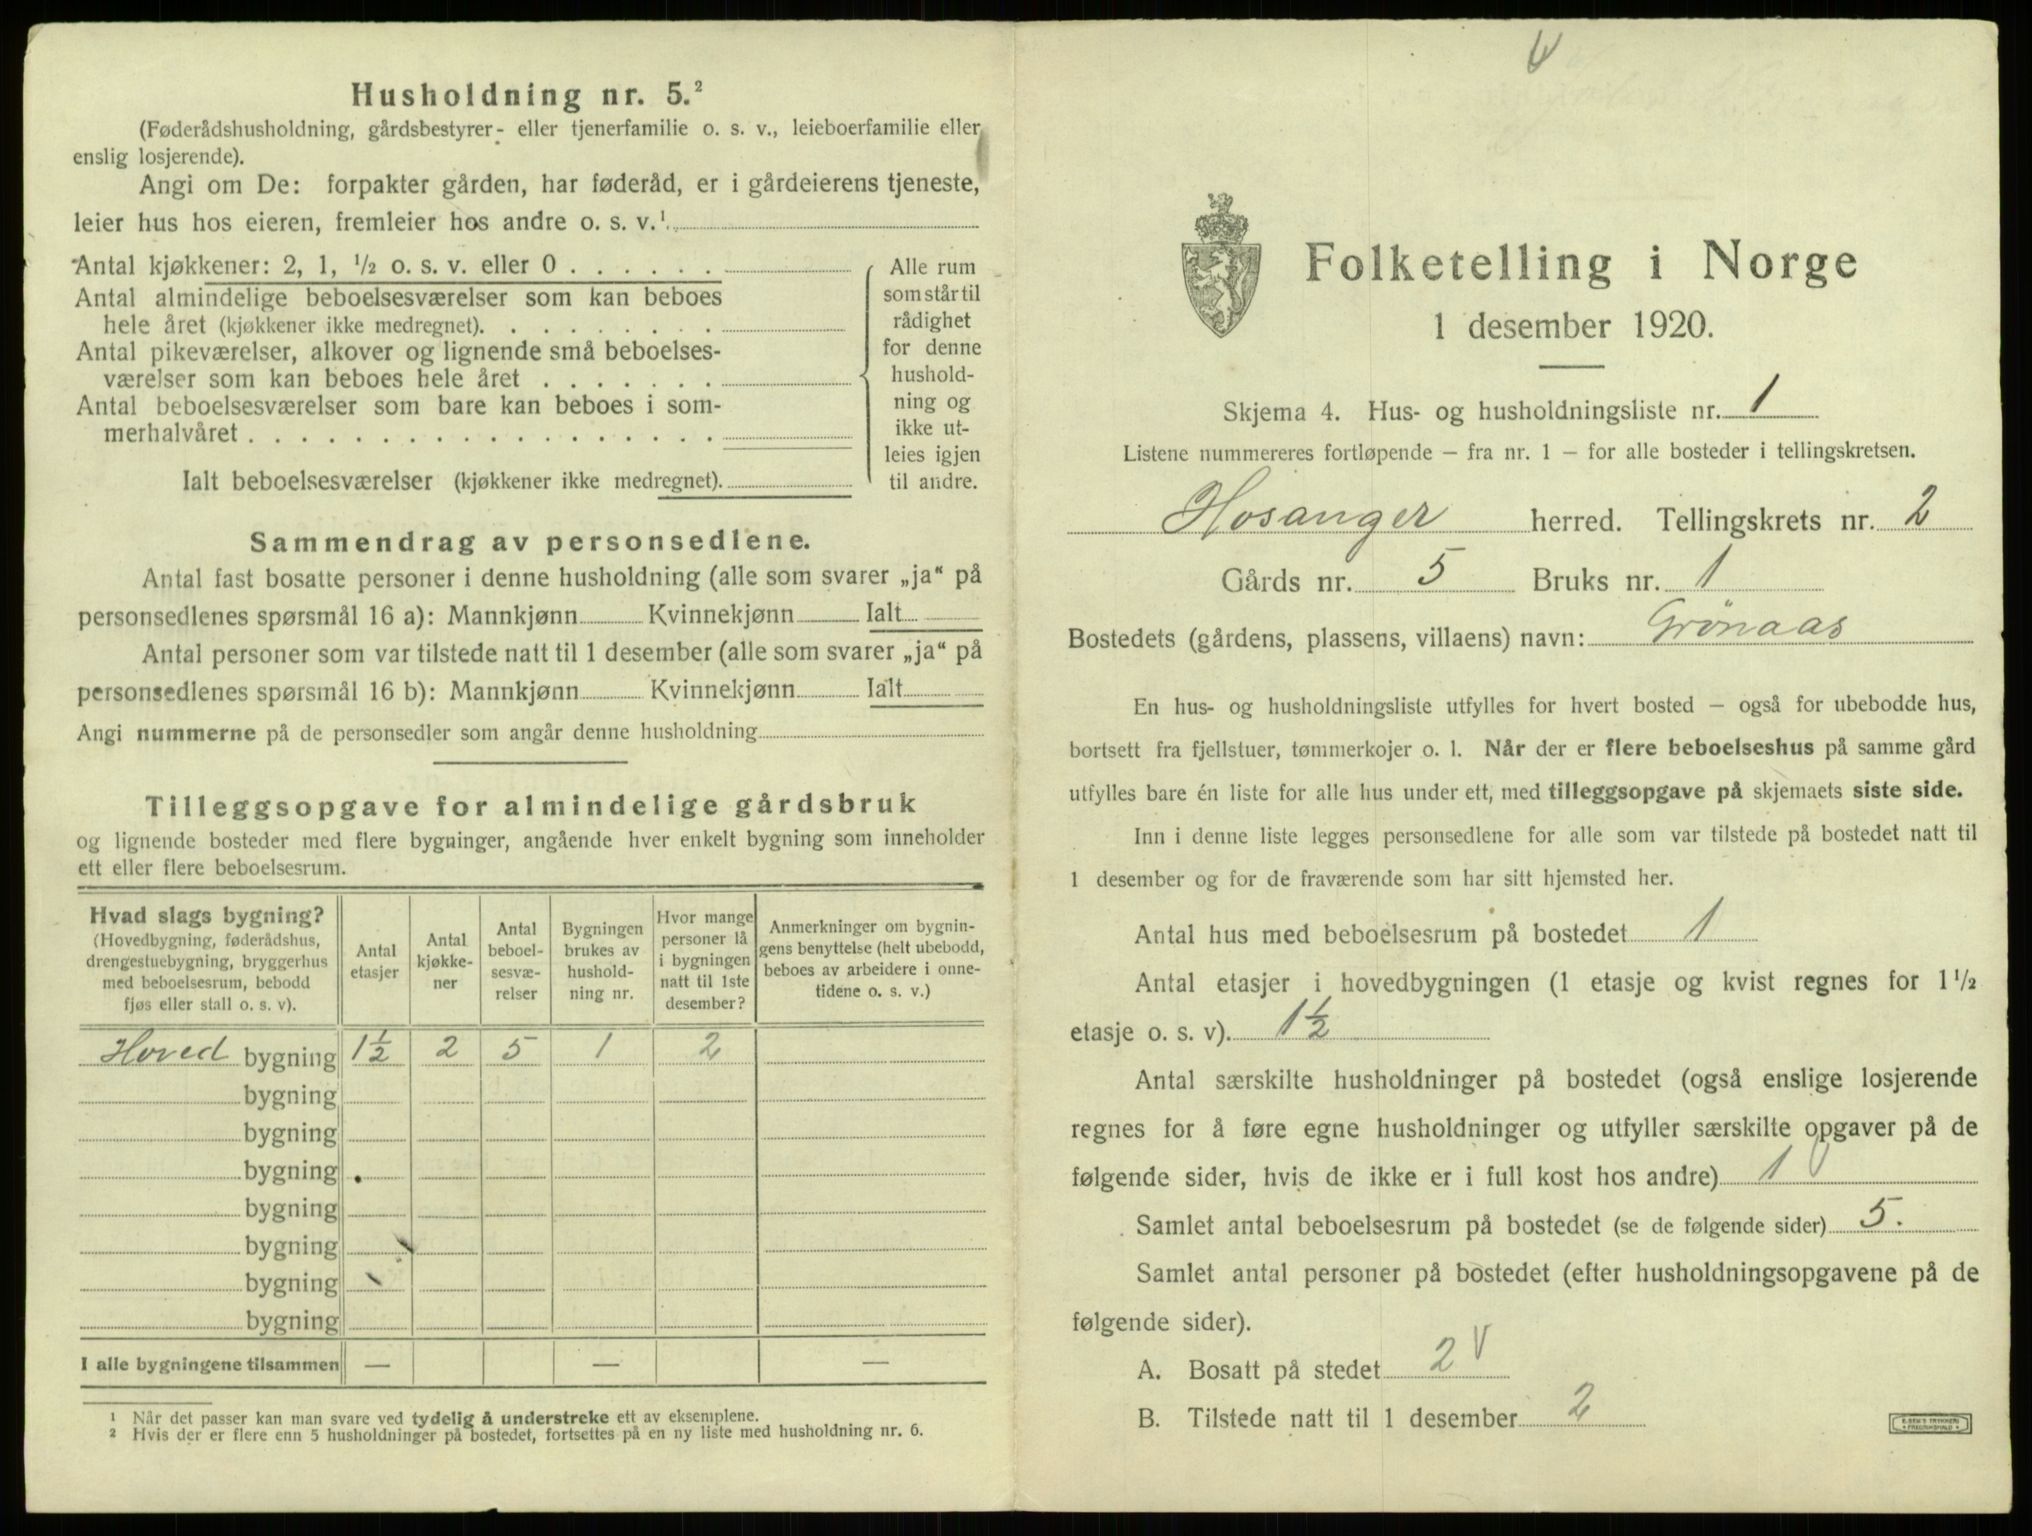 Husholdning nr. 5.²
(Føderådshusholdning, gårdsbestyrer- eller tjenerfamilie o. s. v., leieboerfamilie eller
enslig losjerende).
Angi om De: forpakter gården, har føderåd, er i gårdeierens tjeneste,
leier hus hos eieren, fremleier hos andre o. s. v.¹
Antal kjøkkener: 2, 1, ½ o. s. v. eller 0
Antal almindelige beboelsesværelser som kan beboes
hele året (kjøkkener ikke medregnet).
Antal pikeværelser, alkover og lignende små beboelses-
værelser som kan beboes hele året
Antal beboelsesværelser som bare kan beboes i som-
merhalvåret
Ialt beboelsesværelser (kjøkkener ikke medregnet).
Alle rum
som står til
rådighet
for denne
hushold-
ning og
ikke ut-
leies igjen
til andre.
Sammendrag av personsedlene.
Antal fast bosatte personer i denne husholdning (alle som svarer „ja“ på
personsedlenes spørsmål 16 a): Mannkjønn Kvinnekjønn Ialt
Antal personer som var tilstede natt til 1 desember (alle som svarer „ja“ på
personsedlenes spørsmål 16 b): Mannkjønn Kvinnekjønn Ialt
Angi nummerne på de personsedler som angår denne husholdning
Tilleggsopgave for almindelige gårdsbruk
og lignende bosteder med flere bygninger, angående hver enkelt bygning som inneholder
ett eller flere beboelsesrum.
Hvad slags bygning?
(Hovedbygning, føderådshus,
drengestuebygning, bryggerhus
med beboelsesrum, bebodd
fjøs eller stall o. s. v).
Antal
etasjer
Antal
kjøkke-
ner
Antal
beboel-
sesvæ-
relser
Bygningen
brukes av
hushold-
ning nr.
Hvor mange
personer lå
i bygningen
natt til 1ste
desember?
Anmerkninger om bygnin-
gens benyttelse (helt ubebodd,
beboes av arbeidere i onne-
tidene o. s. v.)
Hoved bygning 1½ 2 5 1 2
bygning
bygning
bygning
bygning
bygning
bygning
bygning
I alle bygningene tilsammen — — —
¹ Når det passer kan man svare ved tydelig å understreke ett av eksemplene.
² Hvis der er flere enn 5 husholdninger på bostedet, fortsettes på en ny liste med husholdning nr. 6.
Folketelling i Norge
1 desember 1920.
Skjema 4. Hus- og husholdningsliste nr. 1
Listene nummereres fortløpende – fra nr. 1 – for alle bosteder i tellingskretsen.
Hosanger herred. Tellingskrets nr. 2
Gårds nr. 5 Bruks nr. 1
Bostedets (gårdens, plassens, villaens) navn: Grønaas
En hus- og husholdningsliste utfylles for hvert bosted – også for ubebodde hus,
bortsett fra fjellstuer, tømmerkojer o. l. Når der er flere beboelseshus på samme gård
utfylles bare én liste for alle hus under ett, med tilleggsopgave på skjemaets siste side.
Inn i denne liste legges personsedlene for alle som var tilstede på bostedet natt til
1 desember og for de fraværende som har sitt hjemsted her.
Antal hus med beboelsesrum på bostedet 1
Antal etasjer i hovedbygningen (1 etasje og kvist regnes for 1½
etasje o. s. v). 1½
Antal særskilte husholdninger på bostedet (også enslige losjerende
regnes for å føre egne husholdninger og utfyller særskilte opgaver på de
følgende sider, hvis de ikke er i full kost hos andre) 1
Samlet antal beboelsesrum på bostedet (se de følgende sider) 5.
Samlet antal personer på bostedet (efter husholdningsopgavene på de
følgende sider).
A. Bosatt på stedet 2
B. Tilstede natt til 1 desember 2